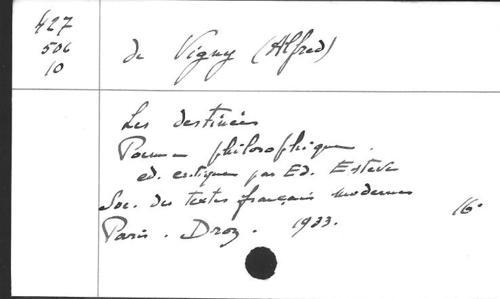 427
506
10
de Vigny (Alfred)
Les destinées
Poemes philosophiques.
ed. critique par Ed. Esteve
Soc. des textes français modernes
Paris. Droz. 1933. 16°